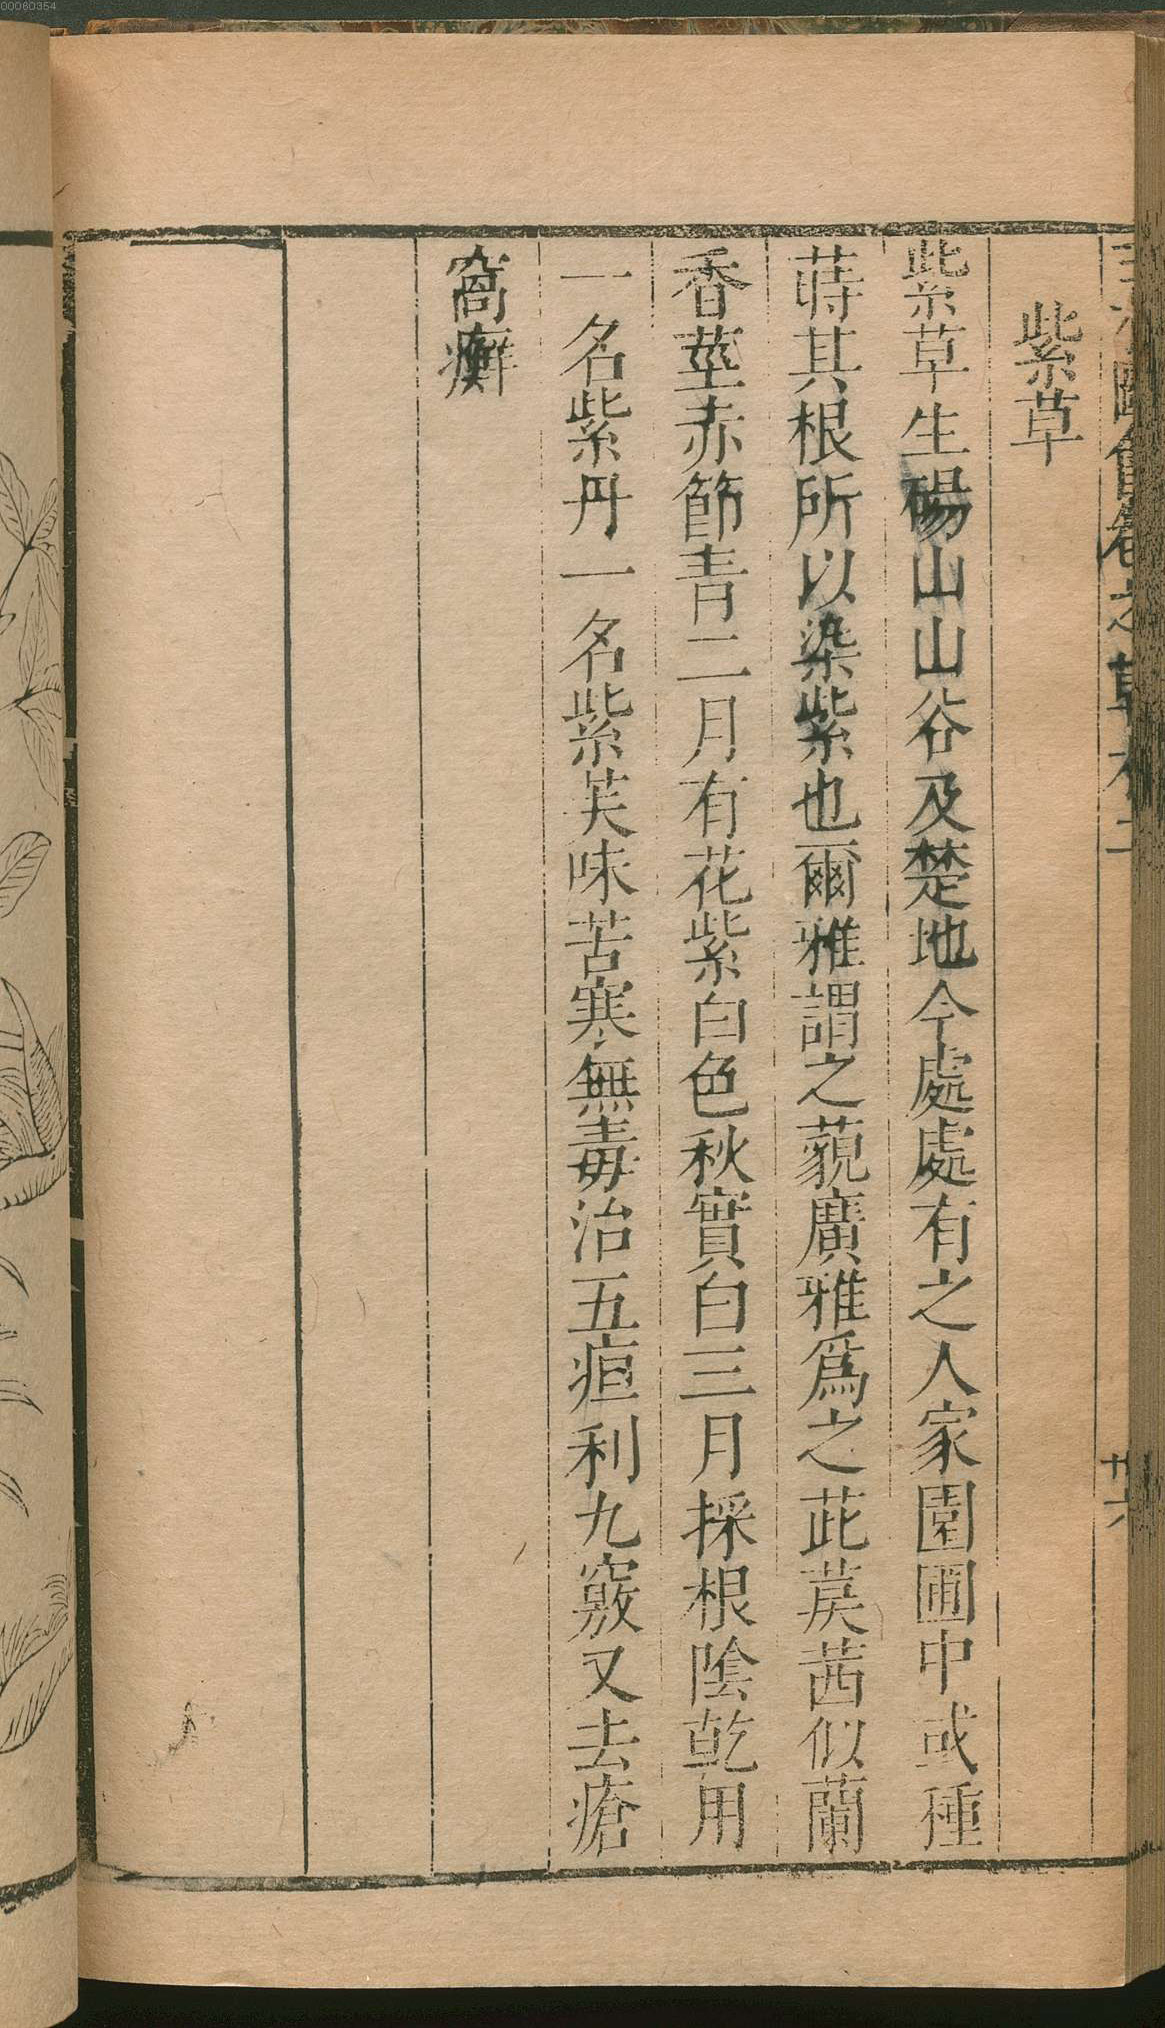 三才圖會卷之草木二
廿六
紫草
紫草生碭山山谷及楚地今處處有之人家園圃中或種
蒔其根所以染紫也爾雅謂之藐廣雅為之茈䓞茜似蘭
香莖赤節青二月有花紫白色秋實白三月採根陰乾用
一名紫丹一名紫芺味苦寒無毒治五疸利九竅又去瘡
窩癬
00060354